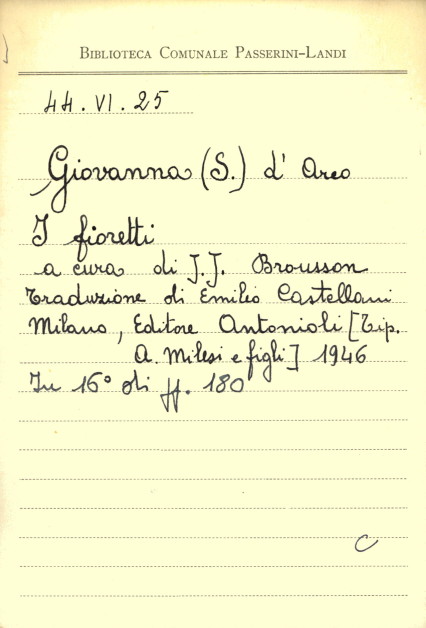 BIBLIOTECA COMUNALE PASSERINI-LANDI
44.VI.25
Giovanna (S.) d' Arco
I fioretti
a cura di J.J. Brousson
Traduzione di Emilio Castellani
Milano, Editore Antonioli [Tip.
A. Milesi e figli] 1946
In 16° di pp. 180
C